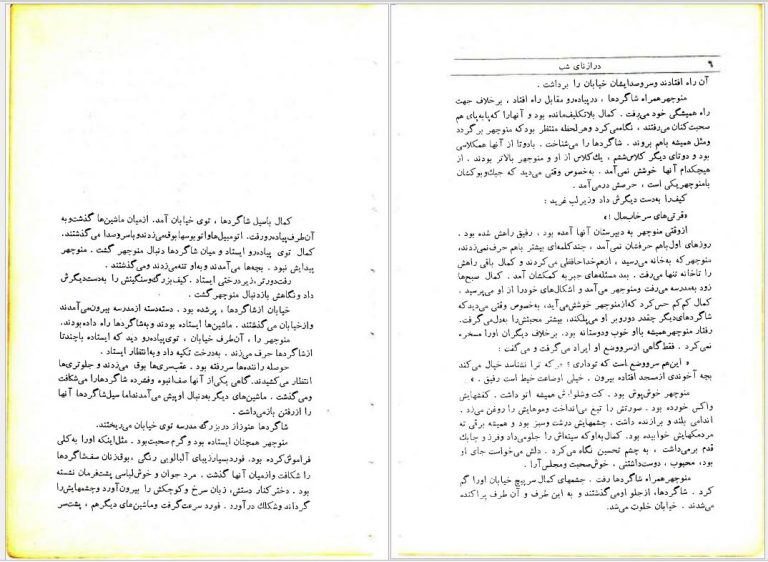 کمال باسیل شاگردها ، توی خیابان آمد. ازمیان ماشین‌ها گذشت‌و به
آن‌طرف‌پیاده‌رو رفت. اتومبیل‌ها و اتوبوسها بوق‌می‌زدند و باسروصدا می‌گذشتند.
کمال توی پیاده‌رو ایستاد و میان شاگردها دنبال منوچهر گشت . منوچهر
پیدایش نبود . بچه‌ها می‌آمدند و به‌او تنه‌می‌زدند و می‌گذشتند .
رفت‌دورتر، زیر درختی ایستاد . کیف‌بزرگ‌و‌سنگینش را به‌دست‌دیگرش
داد و نگاهش بازدنبال منوچهر گشت .
خیابان ازشاگردها ، پرشده بود . دسته‌دسته ازمدرسه بیرون‌می‌آمدند
و ازخیابان می‌گذشتند . ماشین‌ها ایستاده بودند و به‌شاگردها راه داده‌بودند.
منوچهر را ، آن‌طرف خیابان ، توی‌پیاده‌رو دید که ایستاده باچندتا
ازشاگردها حرف می‌زند . به‌درخت تکیه داد و به‌انتظار ایستاد .
حوصله راننده‌ها سررفته بود . عقب‌تری‌ها بوق می‌زدند و جلوتری‌ها
انتظار می‌کشیدند. گاهی یکی‌از آنها صف‌انبوه و فشرده شاگردها را می‌شکافت
و می‌گذشت . ماشین‌های دیگر به‌دنبال او پیش می‌آمدند اما سیل‌شاگردها آنها
را ازرفتن بازمی‌داشت .
شاگردها هنوز از در بزرگ مدرسه توی خیابان می‌ریختند.
منوچهر همچنان ایستاده بود و گرم صحبت‌بود . مثل‌اینکه اورا به‌کلی
فراموش‌کرده بود. فورد بسیار زیبای آلبالویی رنگی ، بوق‌زنان صف‌شاگردها
را شکافت و ازمیان آنها گذشت . مرد جوان و خوش‌لباسی پشت‌فرمان نشسته
بود . دختر کنار دستش، زبان سرخ و کوچکش را بیرون‌آورد و چشمهایش‌را
گرداند و شکلک درآورد . فورد سرعت گرفت و ماشین‌های دیگر هم ، پشت‌سر
۶ درازنای شب
آن راه افتادند و سروصدایشان خیابان را برداشت .
منوچهر همراه شاگردها ، درپیاده‌رو مقابل راه افتاد ، برخلاف جهت
راه همیشگی خود می‌رفت . کمال بلاتکلیف‌مانده بود و آنهارا که‌پابه‌پای هم
صحبت‌کنان می‌رفتند ، نگاه‌می‌کرد و هر لحظه منتظر بود که منوچهر برگردد
و مثل همیشه باهم بروند . شاگردها را می‌شناخت . با دوتا از آنها همکلاسی
بود و دوتای دیگر کلاس‌ششم ، یك‌کلاس از او و منوچهر بالاتر بودند . از
هیچکدام آنها خوشش نمی‌آمد . به‌خصوص وقتی می‌دید که جیك‌و‌بوکشان
بامنوچهر یکی است ، حرصش درمی‌آمد .
کیف‌را به‌دست دیگرش داد و زیرلب غرید :
«قرتی‌های سرخاب‌مال !»
ازوقتی منوچهر به دبیرستان آنها آمده بود ، رفیق راهش شده بود .
روزهای اول‌باهم حرفشان نمی‌آمد ، چندکلمه‌ای بیشتر باهم حرف‌نمی‌زدند،
منوچهر که به‌خانه می‌رسید ، ازهم‌خداحافظی می‌کردند و کمال باقی راهش
را تاخانه تنها می‌رفت . بعد مسئله‌های جبر به کمکشان آمد . کمال صبح‌ها
زود به‌مدرسه می‌رفت و منوچهر می‌آمد و اشکال‌های خودرا از او می‌پرسید .
کمال کم‌کم حس‌کرد که‌ازمنوچهر خوشش‌می‌آید، به‌خصوص وقتی می‌دید‌که
شاگردهای‌دیگر چقدر دوروبر او می‌پلکند، بیشتر محبتش‌را به‌دل‌می‌گرفت.
رفتار منوچهر همیشه بااو خوب و دوستانه بود. برخلاف دیگران اورا مسخره
نمی‌کرد . فقط‌گاهی ازسرووضع او ایراد می‌گرفت و می‌گفت :
« این‌هم سرووضع است که توداری ؟ هرکه ترا نشناسد خیال می‌کند
بچه آخوندی ازمسجد افتاده بیرون . خیلی اوضاعت خیط است رفیق . »
منوچهر خوش‌پوش بود . کت و شلوارش همیشه اتو داشت . کفشهایش
واکس خورده بود . صورتش را تیغ می‌انداخت و موهایش را روغن می‌زد .
اندامی بلند و برازنده داشت . چشمهایش درشت و سبز بود و همیشه برقی ته
مردمکهایش خوابیده بود. کمال به‌او که سینه‌اش را جلومی‌داد و فرز و چابك
قدم برمی‌داشت ، به چشم تحسین نگاه می‌کرد . دلش می‌خواست جای او
بود، محبوب ، دوست‌داشتنی ، خوش‌صحبت و مجلس‌آرا .
منوچهر همراه شاگردها رفت . چشمهای کمال سرپیچ خیابان اورا گم
کرد . شاگردها، ازجلو او می‌گذشتند و به این طرف و آن طرف پراکنده
می‌شدند . خیابان خلوت می‌شد.